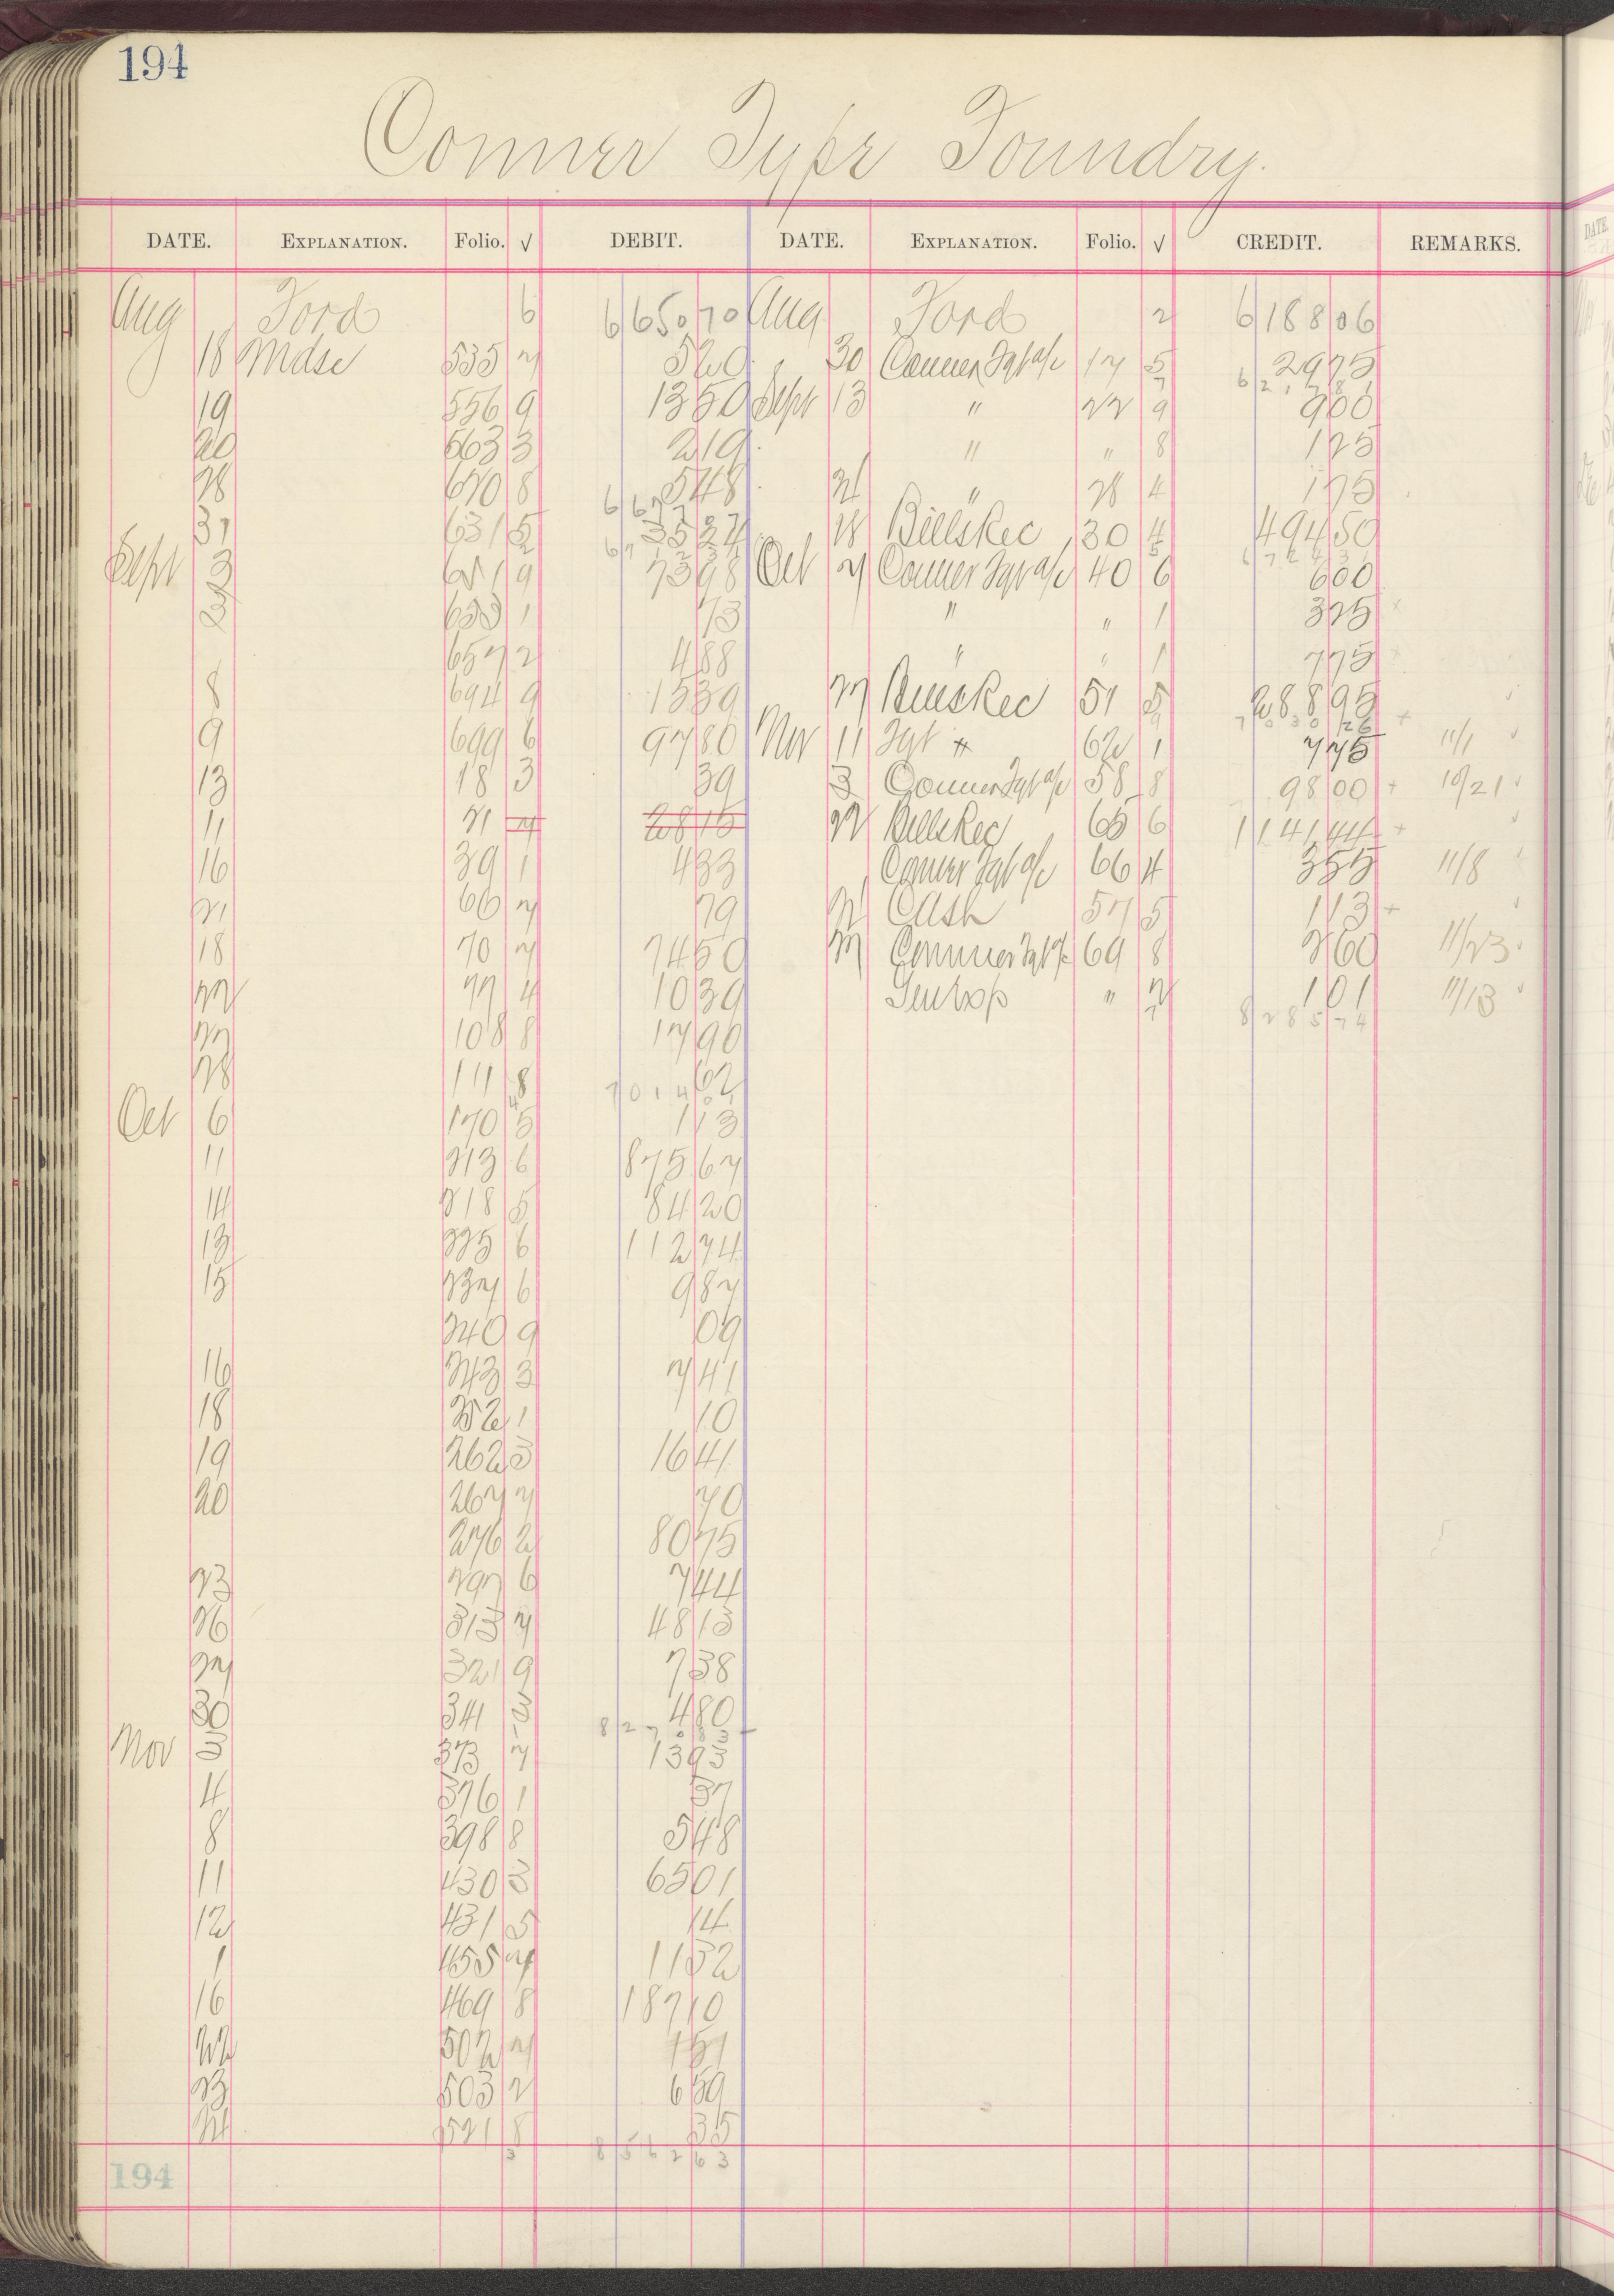 194
Conner Type Foundry.
DATE. EXPLANATION. Folio. √ DEBIT. DATE. EXPLANATION. Folio. √ CREDIT. REMARKS.
Aug Ford 6 6650 70 Aug Ford 2 6188 06
18 Mdse 535 7 5 20 30 Conner Fgt a/c 17 5 29 75
7 6217 81
19 556 9 13 50 Sept 13 " 22 9 9 00
20 563 3 2 19 " " 8 1 25
28 620 8 5 48 21 " 28 4 1 75
667
31 631 5 35 24 18 Bills Rec 30 4 494 50
2 67 5
Sept 3 9 73 98 Oct 7 Conner Fgt a/c 40 6 6 00
653 1 73 " " 1 3 25
657 2 4 88 " " 1 7 75
8 694 9 13 39 27 Bills Rec 51 5 288 95
9 7030 26
9 699 6 97 80 Nov 11 Fgt " 62 1 7 75 11/1
13 18 3 39 3 Conner Fgt a/c 58 8 98 00 10/21
11 21 7 28 15 22 Bills Rec 65 6 1141 44
16 39 1 4 33 Conner Fgt a/c 66 4 3 55 11/8
21 66 7 79 21 Cash 57 5 1 13
18 70 7 74 50 27 Conner Fgt a/c 69 8 2 60 11/23
22 77 4 10 39 " 2 1 01 11/13
7 8285 74
27 108 8 17 90
28 111 8 62
4 7014 01
Oct 6 170 5 1 13
11 213 6 875 67
14 218 5 84 20
13 225 6 112 74
15 237 6 9 87
240 9 09
16 243 3 7 41
18 252 1 10
19 262 3 16 41
20 267 7 70
276 2 80 75
23 297 6 7 44
26 313 7 48 13
27 321 9 7 38
30 341 3 4 80
8270 83
Nov 3 373 7 13 93
4 376 1 37
8 398 8 5 48
11 430 3 65 01
12 431 5 14
1 455 7 11 32
16 469 8 187 10
22 502 7 1 51
23 503 2 6 59
24 521 8 35
3 8562 63
194